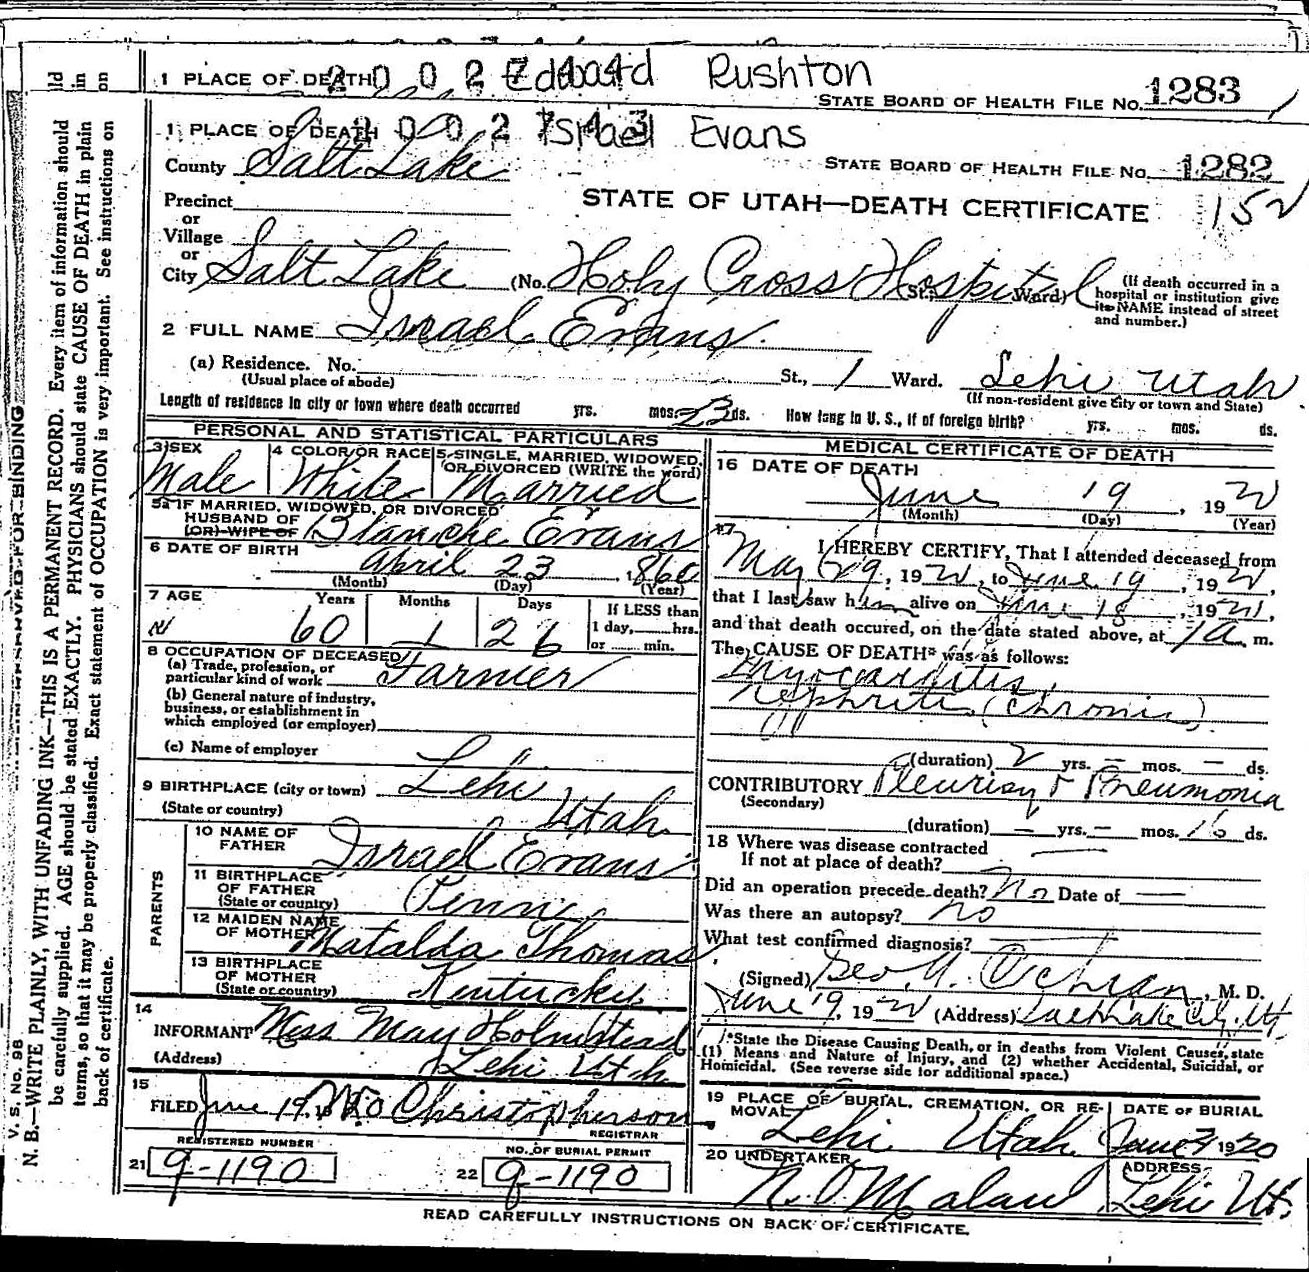 1 PLACE OF DEATH 2002744 Edward Rushton
STATE BOARD OF HEALTH FILE No. 1283
1 PLACE OF DEATH 2002743 Israel Evans
County Salt Lake
STATE BOARD OF HEALTH FILE No. 1282
STATE OF UTAH—DEATH CERTIFICATE 152
Precinct
or
Village
or
City Salt Lake (No. Holy Cross Hospital St., Ward)
(If death occurred in a
hospital or institution give
its NAME instead of street
and number.)
2 FULL NAME Israel Evans.
(a) Residence. No. St., 1 Ward. Lehi Utah
(Usual place of abode) (If non-resident give City or town and State)
Length of residence in city or town where death occurred yrs. mos. 23 ds. How long in U. S., if of foreign birth? yrs. mos. ds.
PERSONAL AND STATISTICAL PARTICULARS
3 SEX 4 COLOR OR RACE 5 SINGLE, MARRIED, WIDOWED,
OR DIVORCED (WRITE the word)
Male White Married
5a IF MARRIED, WIDOWED, OR DIVORCED
HUSBAND OF
(OR) WIFE OF Blanche Evans
6 DATE OF BIRTH April 23, 1860
(Month) (Day) (Year)
7 AGE Years Months Days If LESS than
1 day, hrs.
60 1 26 or min.
8 OCCUPATION OF DECEASED
(a) Trade, profession, or
particular kind of work Farmer
(b) General nature of industry,
business, or establishment in
which employed (or employer)
(c) Name of employer
9 BIRTHPLACE (city or town) Lehi
(State or country) Utah
PARENTS
10 NAME OF
FATHER Israel Evans
11 BIRTHPLACE
OF FATHER
(State or country) Penn
12 MAIDEN NAME
OF MOTHER Matalda Thomas
13 BIRTHPLACE
OF MOTHER
(State or country) Kentucky
14
INFORMANT Miss May Holmstead
(Address) Lehi Utah
15
FILED June 19, Christopherson
REGISTRAR
REGISTERED NUMBER NO. OF BURIAL PERMIT
21 9-1190 22 9-1190
MEDICAL CERTIFICATE OF DEATH
16 DATE OF DEATH
June 19, 1920
(Month) (Day) (Year)
17
I HEREBY CERTIFY, That I attended deceased from
May 29, 1920, to June 19, 1920
that I last saw him alive on June 18, 1920,
and that death occured, on the date stated above, at 1 a m.
The CAUSE OF DEATH* was as follows:
Myocarditis,
Nephritis (Chronic)
(duration) 2 yrs. — mos. — ds.
CONTRIBUTORY Pleurisy & Pneumonia
(Secondary)
(duration) — yrs. — mos. 16 ds.
18 Where was disease contracted
If not at place of death?
Did an operation precede death? No Date of —
Was there an autopsy? no
What test confirmed diagnosis?
(Signed) Geo. W. Cochran, M. D.
June 19, 1920 (Address) Salt Lake City, Ut.
*State the Disease Causing Death, or in deaths from Violent Causes, state
(1) Means and Nature of Injury, and (2) whether Accidental, Suicidal, or
Homicidal. (See reverse side for additional space.)
19 PLACE OF BURIAL, CREMATION, OR RE-
MOVAL DATE OF BURIAL
Lehi Utah June 1920
20 UNDERTAKER ADDRESS
N. O. Malan Lehi Ut.
READ CAREFULLY INSTRUCTIONS ON BACK OF CERTIFICATE.
V. S. No. 98
N. B.—WRITE PLAINLY, WITH UNFADING INK—THIS IS A PERMANENT RECORD. Every item of information should
be carefully supplied. AGE should be stated EXACTLY. PHYSICIANS should state CAUSE OF DEATH in plain
terms, so that it may be properly classified. Exact statement of OCCUPATION is very important. See instructions on
back of certificate.